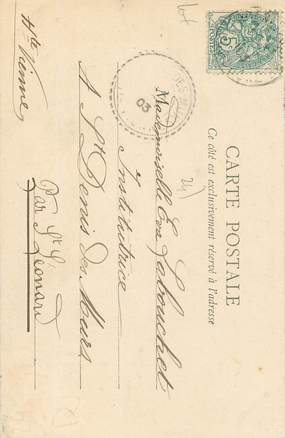 CARTE POSTALE
Ce côté est exclusivement réservé à l'adresse
5
POSTES
03
Mademoiselle
Institutrice
A St Denis des Murs
Par St Léonard
Hte Vienne